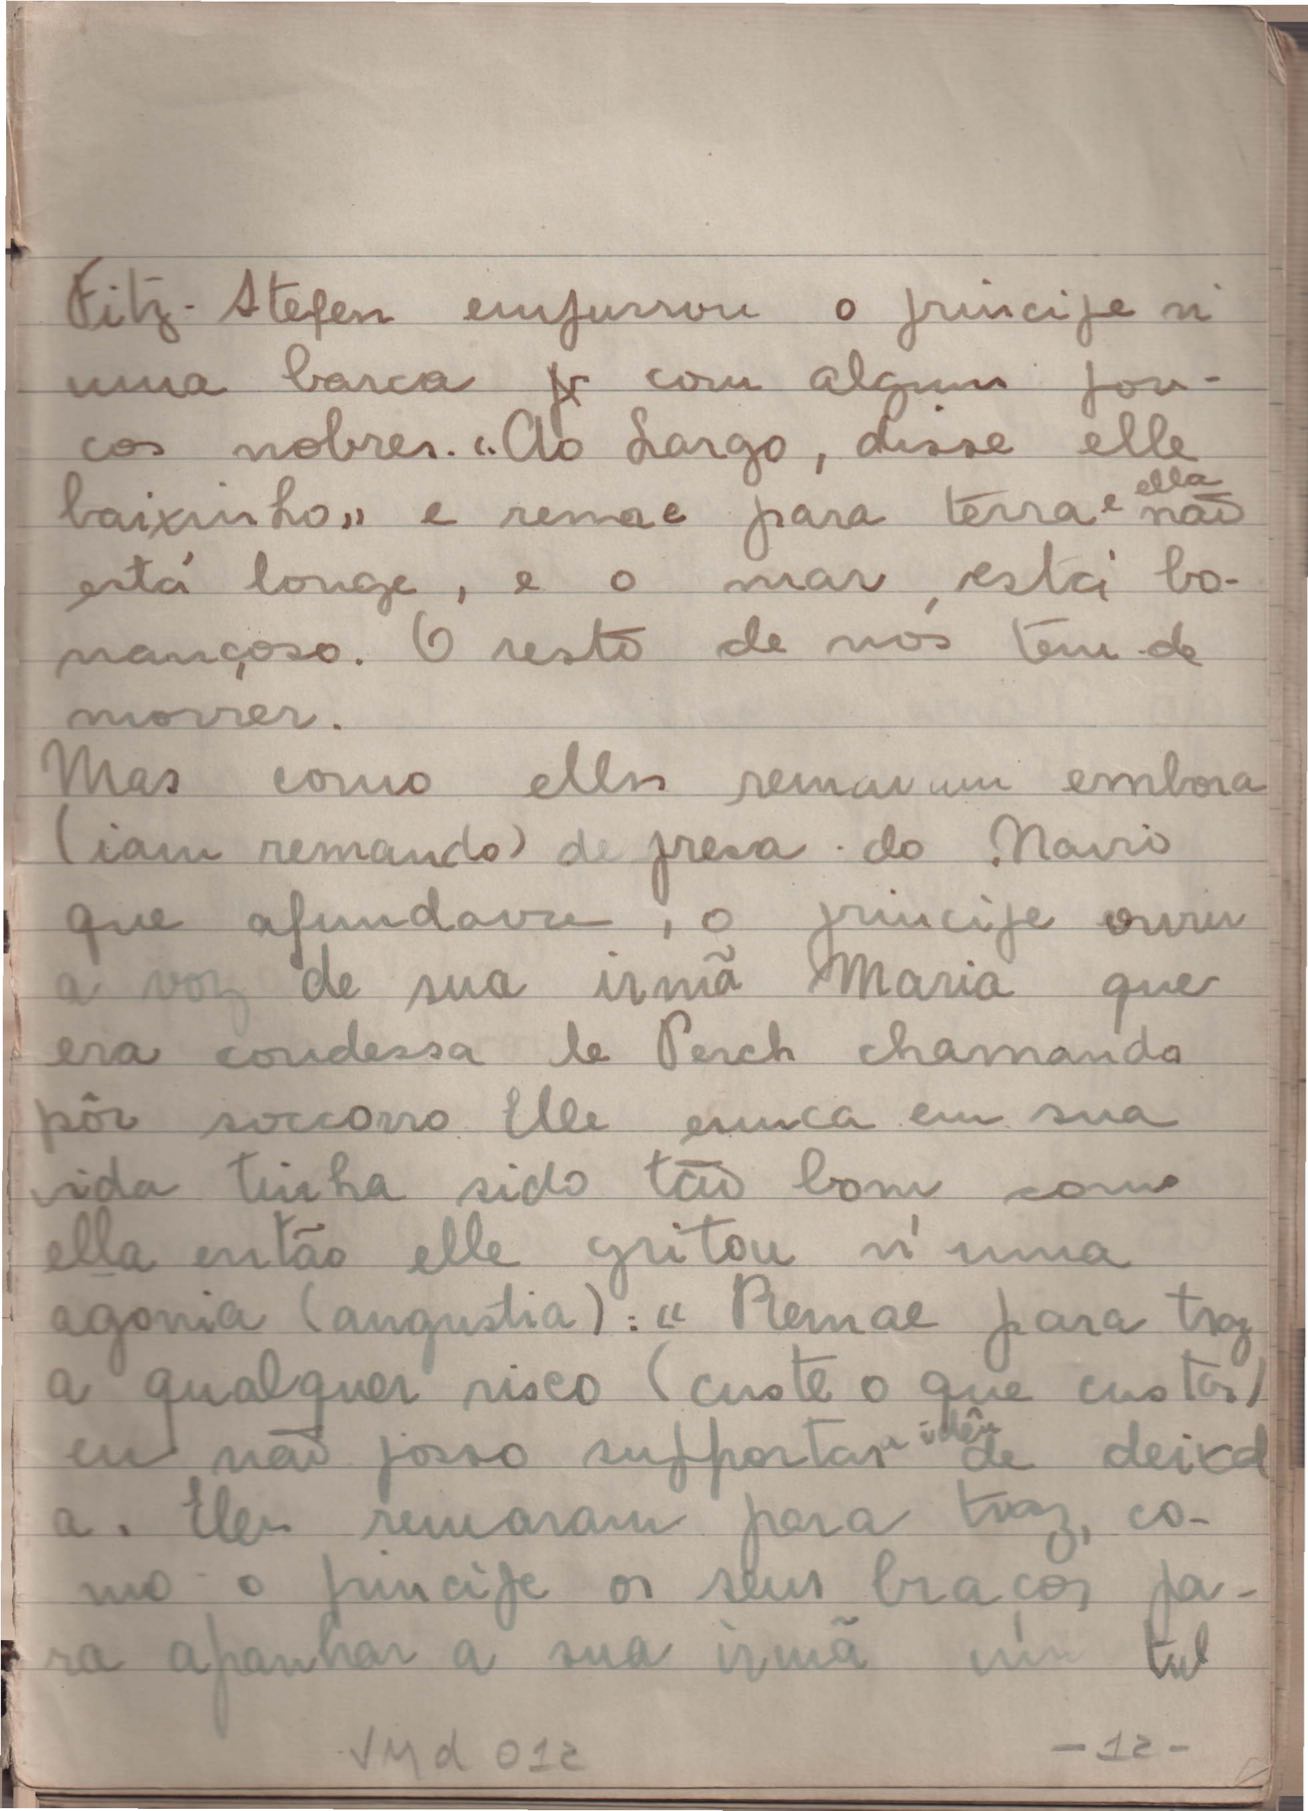 Fitz-Stefen empurrou o principe n'
uma barca com alguns pou-
cos nobres. "Ao Largo, disse elle
baixinho" e remae para terra e ella não
está longe, e o mar, está bo-
nançoso. O resto de nós tem de
morrer.
Mas como elles remavam embora
(iam remando) de presa do Navio
que afundava, o principe ouviu
a voz de sua irmã Maria que
era condessa le Perch chamando
pôr soccorro Elle nunca em sua
vida tinha sido tão bom como
ella então elle gritou n'uma
agonia (angustia): « Remae para traz
a qualquer risco (custe o que custar)
eu não posso supportar a idêa de deixal
a. Elles remaram para traz, co-
mo o principe os seus braços pa-
ra apanhar a sua irmã tal
Jyd 012 -12-